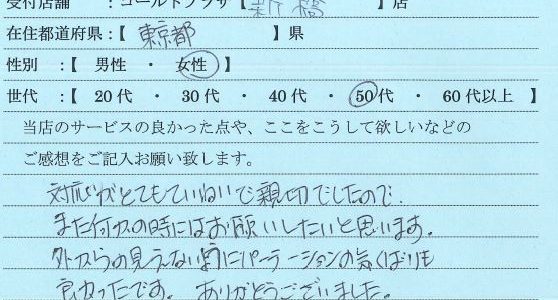 受付店舗 : ゴールドプラザ【 新橋 】店
在住都道府県:【 東京都 】県
性別 :【 男性 ・ 女性 】
世代 :【 20代 ・ 30代 ・ 40代 ・ 50代 ・ 60代以上 】
当店のサービスの良かった点や、ここをこうして欲しいなどの
ご感想をご記入お願い致します。
対応がとてもていねいで親切でしたので、
また何かの時にはお願いしたいと思います。
外からの見えない様にパーテーションの気くばりも
良かったです。ありがとうございました。